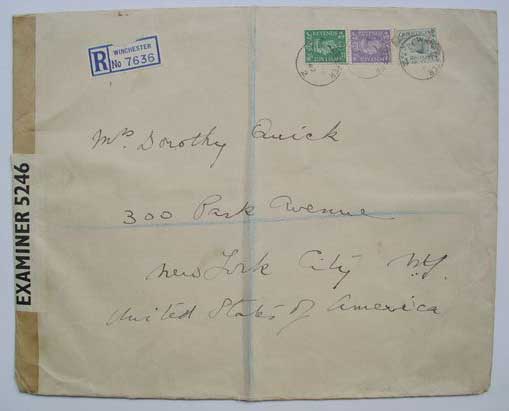 R WINCHESTER
No 7636
Mrs Dorothy Quick
300 Park Avenue
New York City N.Y.
United States of America
EXAMINER 5246
REVENUE
REVENUE